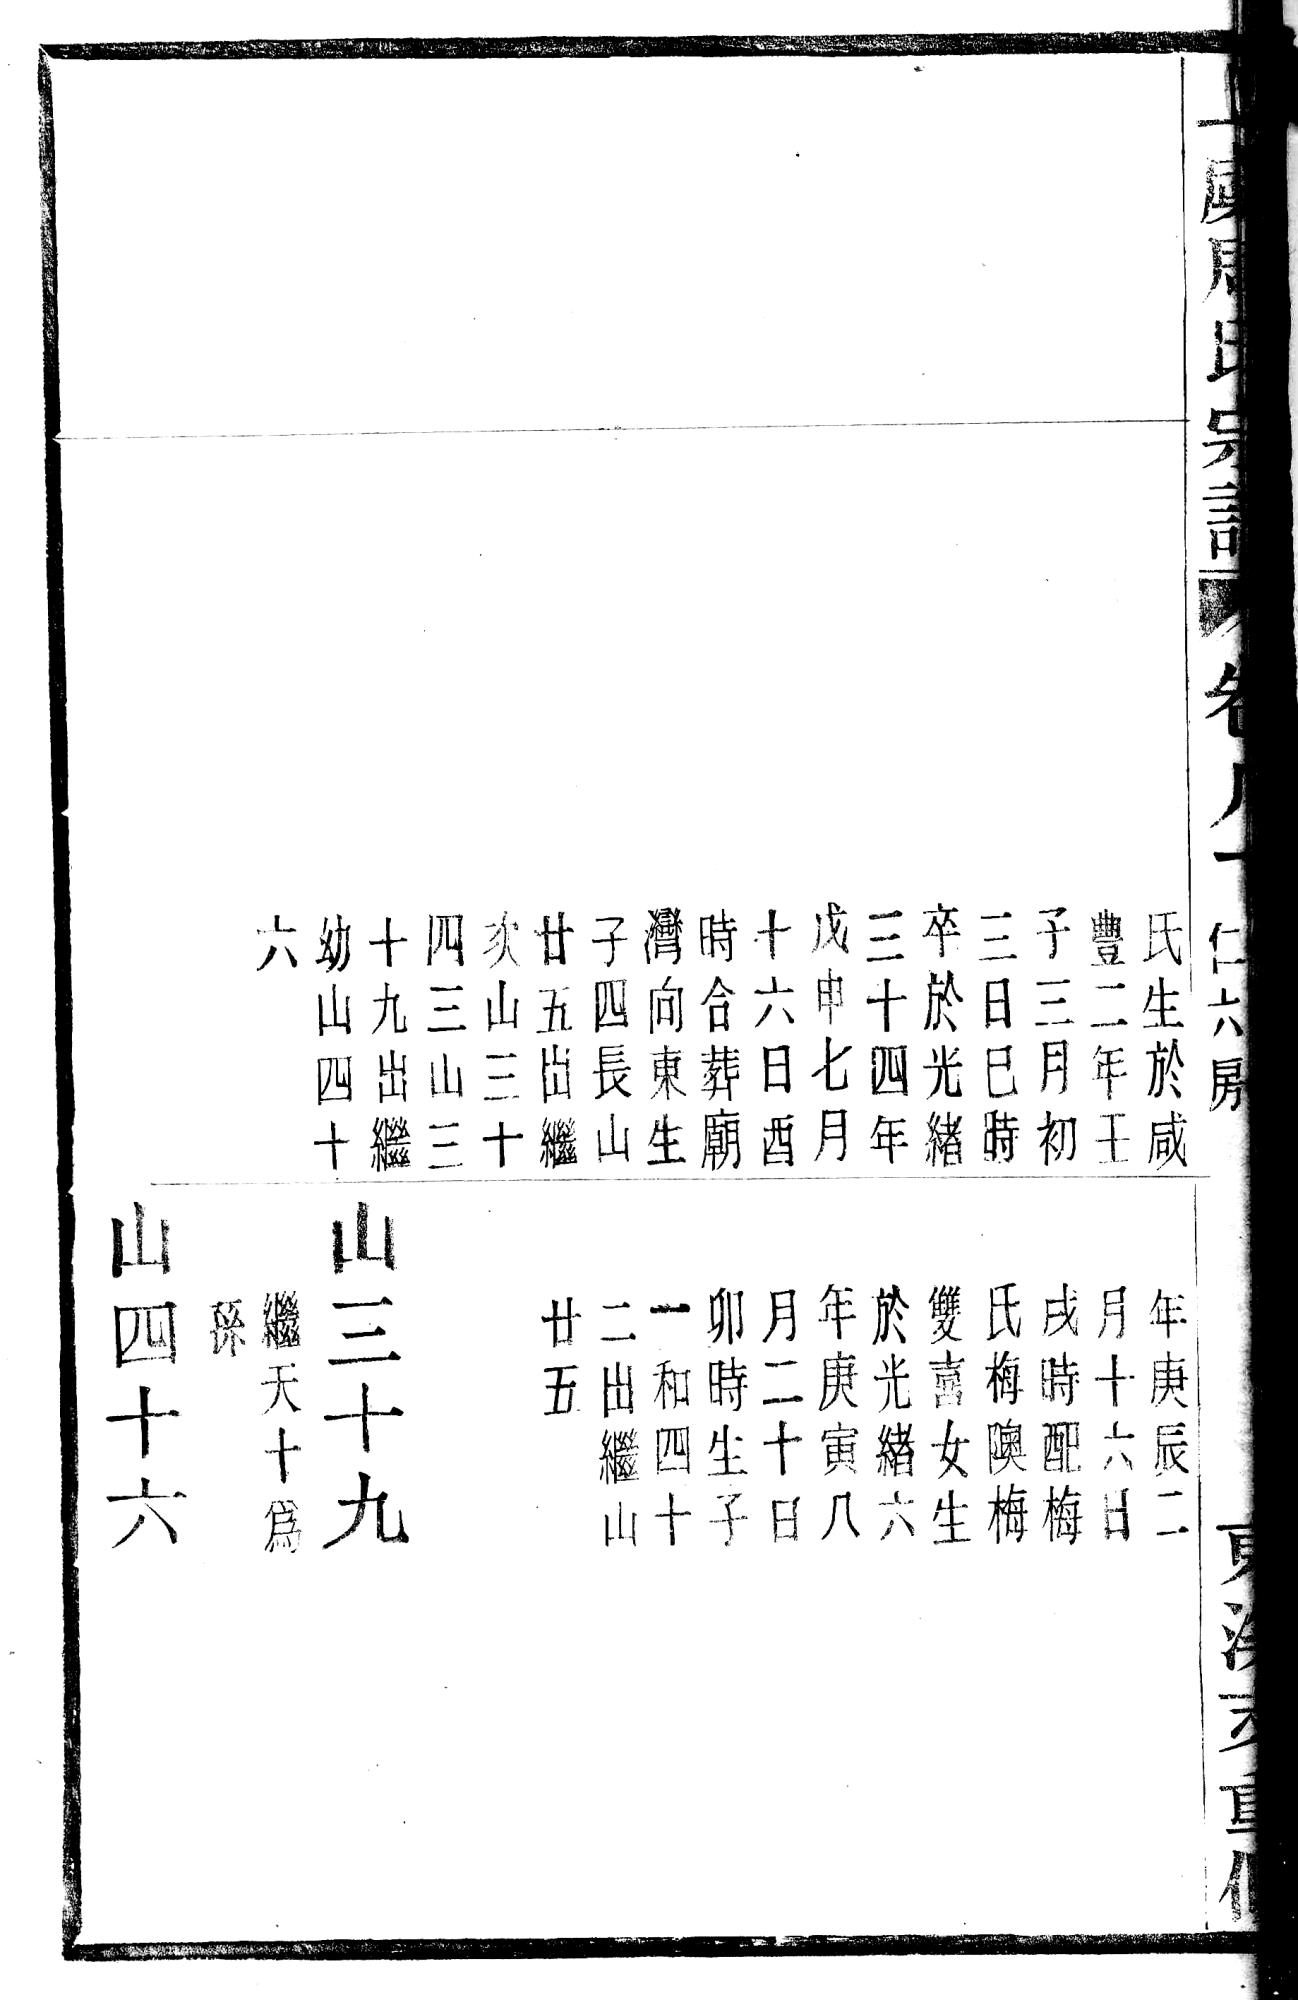 周氏宗譜 卷八十 仁六房
氏生於咸
豐二年壬
子三月初
三日巳時
卒於光緒
三十四年
戊申七月
十六日酉
時合葬廟
灣向東生
子四長山
廿五出繼
次山三十
四三山三
十九出繼
幼山四十
六
年庚辰二
月十六日
戌時配梅
氏梅隩梅
雙喜女生
於光緒六
年庚寅八
月二十日
卯時生子
一和四十
二出繼山
廿五
山三十九
繼天十為
孫
山四十六